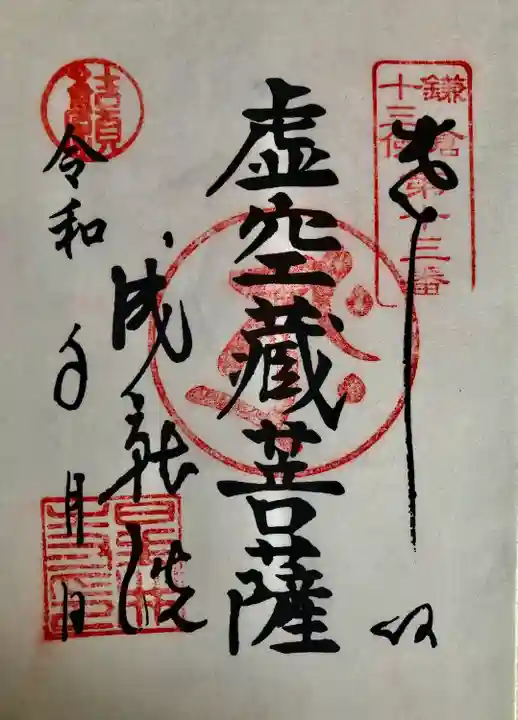 鎌倉
十三佛
第十三番
虚空藏菩薩
成就院
令和 年 月 日
結願